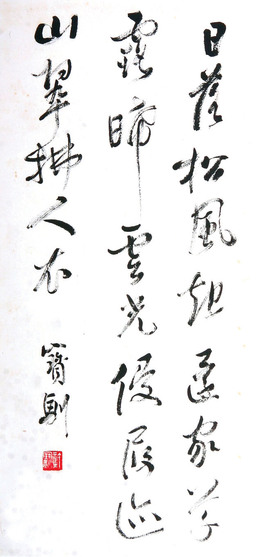 日落松風起還家草
露晞雲光侵履迹
山翠拂人衣
寶馴